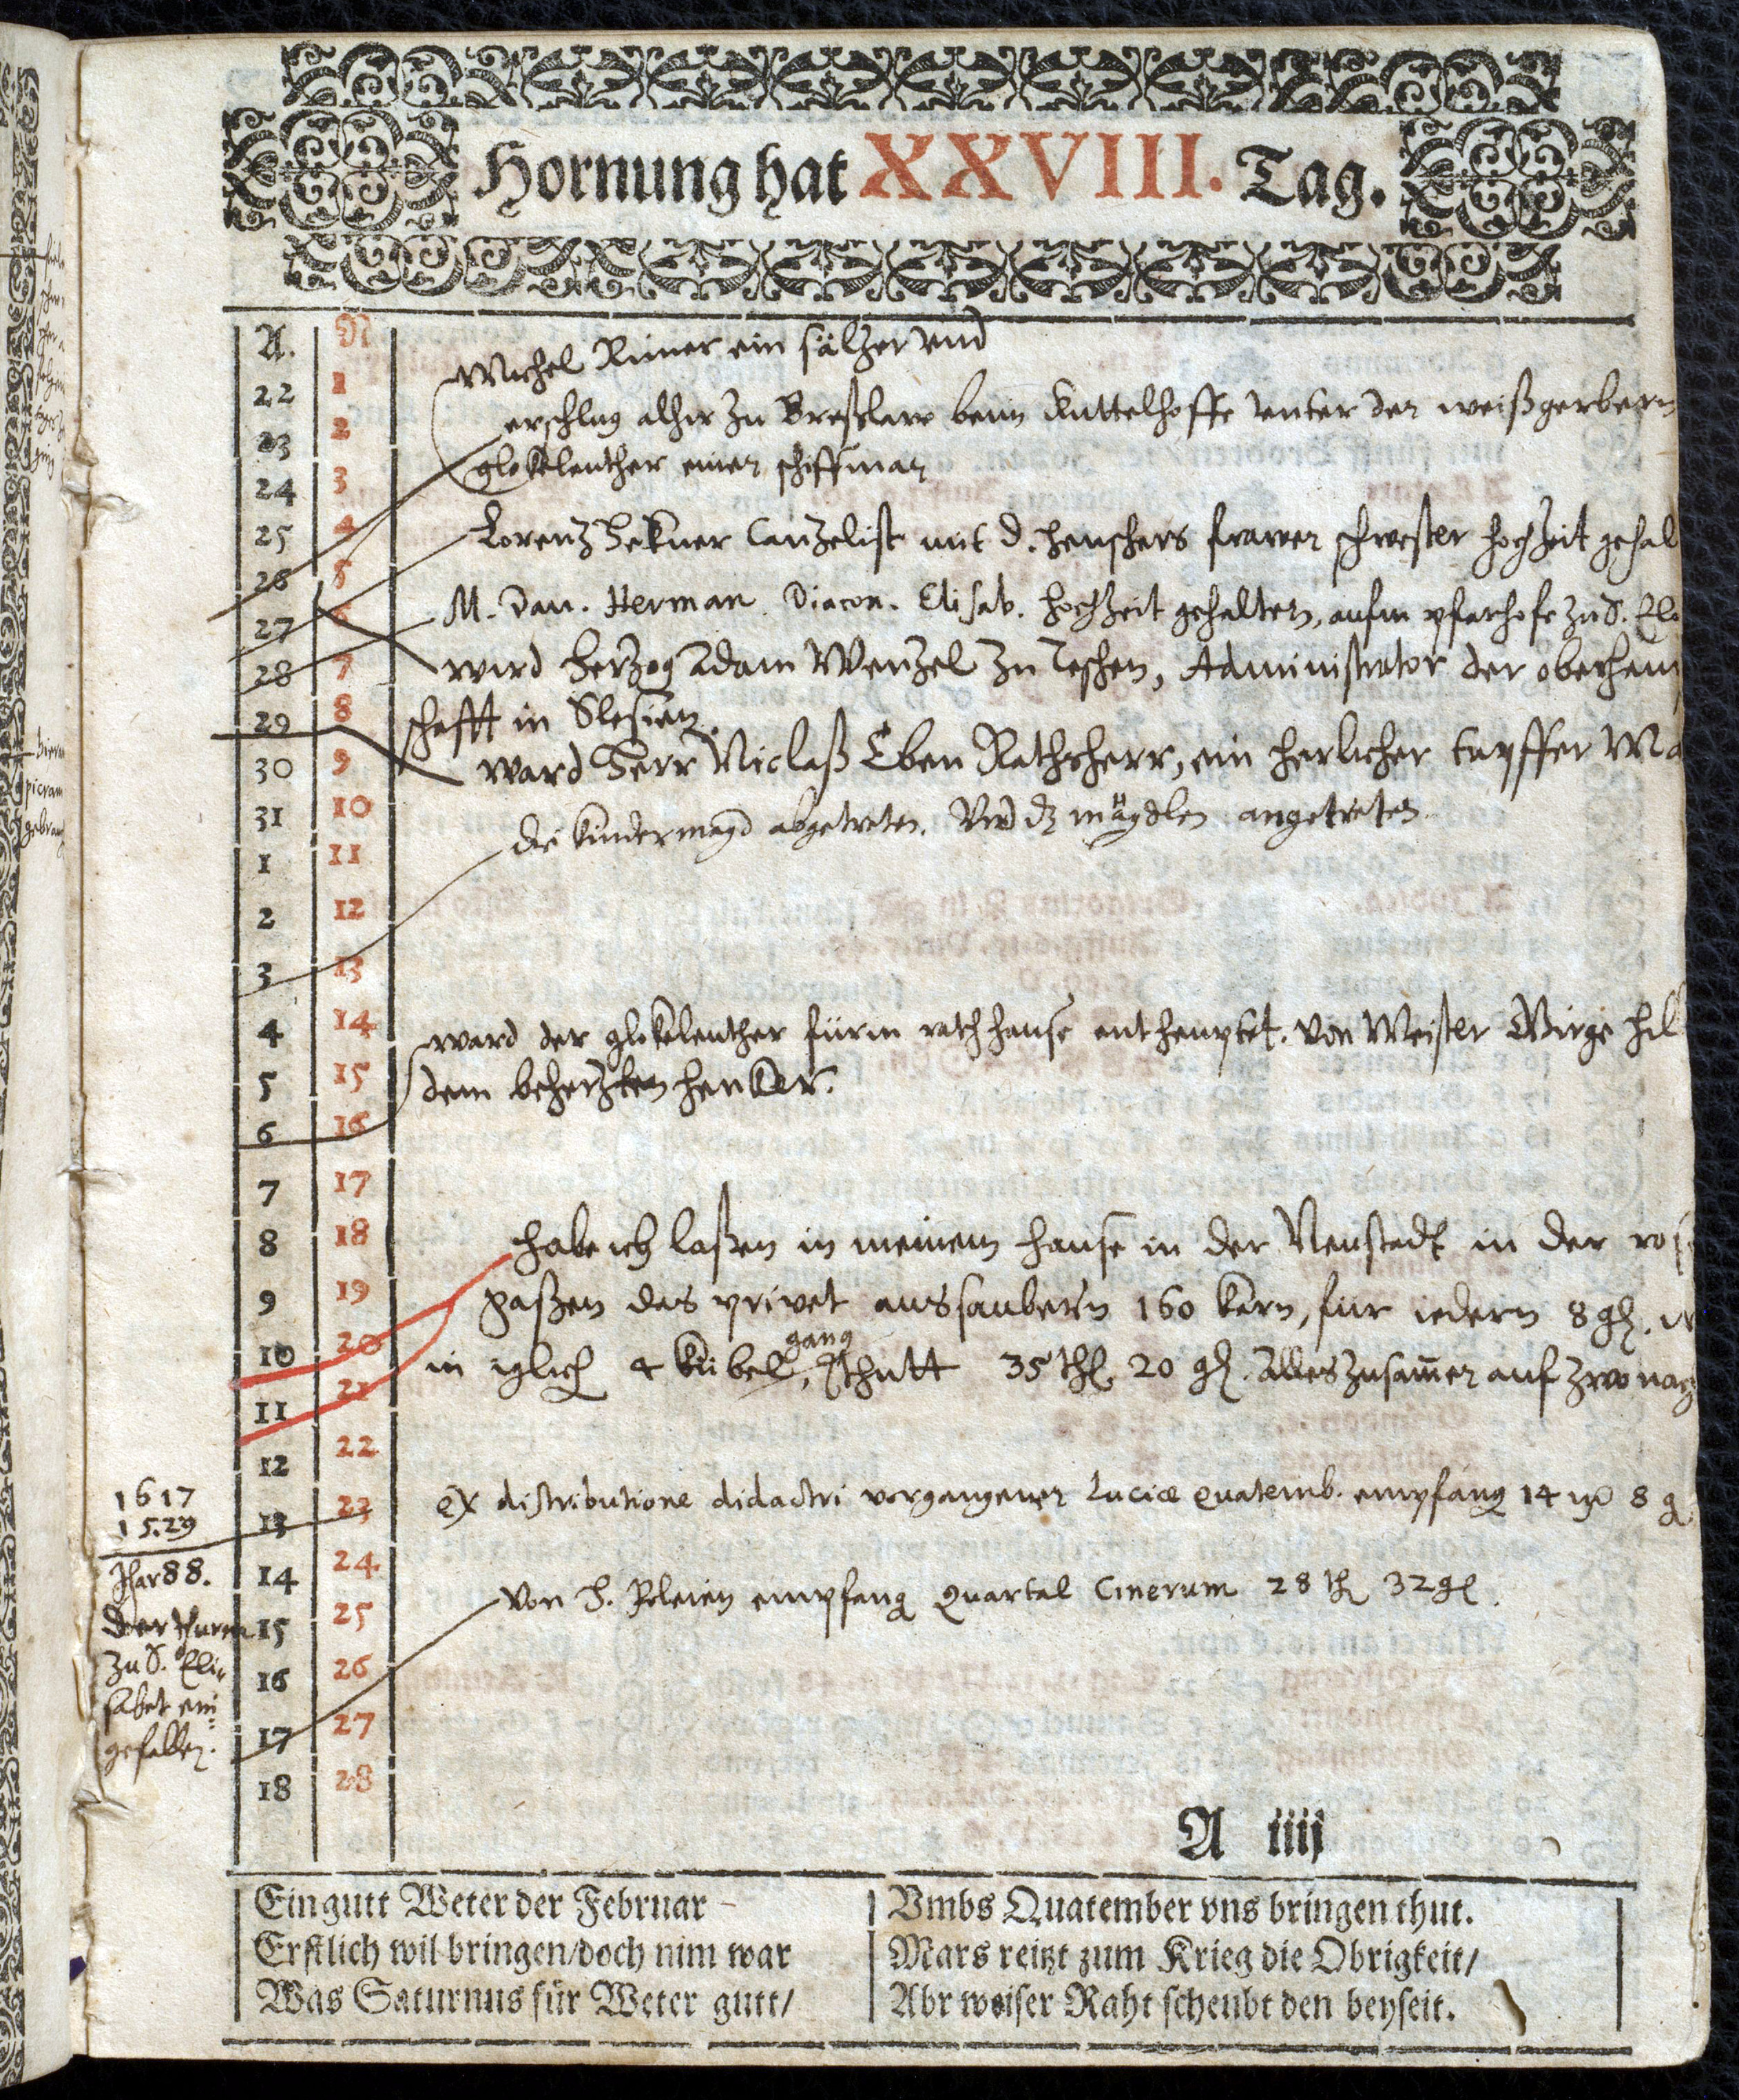 Hornung hat XXVIII. Tag.
A. N
22 1
23 2
24 3
25 4
26 5
27 6
28 7
29 8
30 9
31 10
1 11
2 12
3 13
4 14
5 15
6 16
7 17
8 18
9 19
10 20
11 21
12 22
13 23
14 24
15 25
16 26
17 27
18 28
Michel Rimer ein sältzer vnd
erschlug alhir zu Breßlaw beim Kuttelhoffe vnter den weißgerbern
glokeleuther einen schiffman
Lorenz Canzelist mit D. henschers frawen schwester hochzeit gehal
M. Dan. Herman Diacon. Elisab. hochzeit gehalten, aufm pfarhofe zu S. Eli
wird Herzog Adam Wenzel zu Teschen, Administrator der oberhaupt
schafft in Slesien.
ward Herr Niclaß Eben Rathsherr, ein herlicher tapffer Ma
die kindermagd abgetreten. Vnd dz mägdlen angetreten
ward der glokelenther fürm rathhause entheuptet. Von Meister Girge hil
dem beherzten henker.
habe ich laßen in meinem hause in der Neustadt in der ros
gaßen das privet aussaubern 160 karn, für iedern 8 gl.
in iglich 4 kübel, gang thutt 35 thl 20 gl. Alles zusamen auf zwo nach
ex distributione didactri vergangenen Luciæ quatemb. empfang 14 8 g
von H. empfang Quartal Cinerum 28 th 32 gl.
1617
15.29
Jhar 88.
der thurm
zu S. Eli-
sabet ein-
gefallen.
A iiij
Ein gutt Weter der Februar
Erstlich wil bringen/doch nim war
Was Saturnus für Weter gutt/
Vmbs Quatember vns bringen thut.
Mars reitzt zum Krieg die Obrigkeit/
Abr weiser Raht scheubt den beyseit.